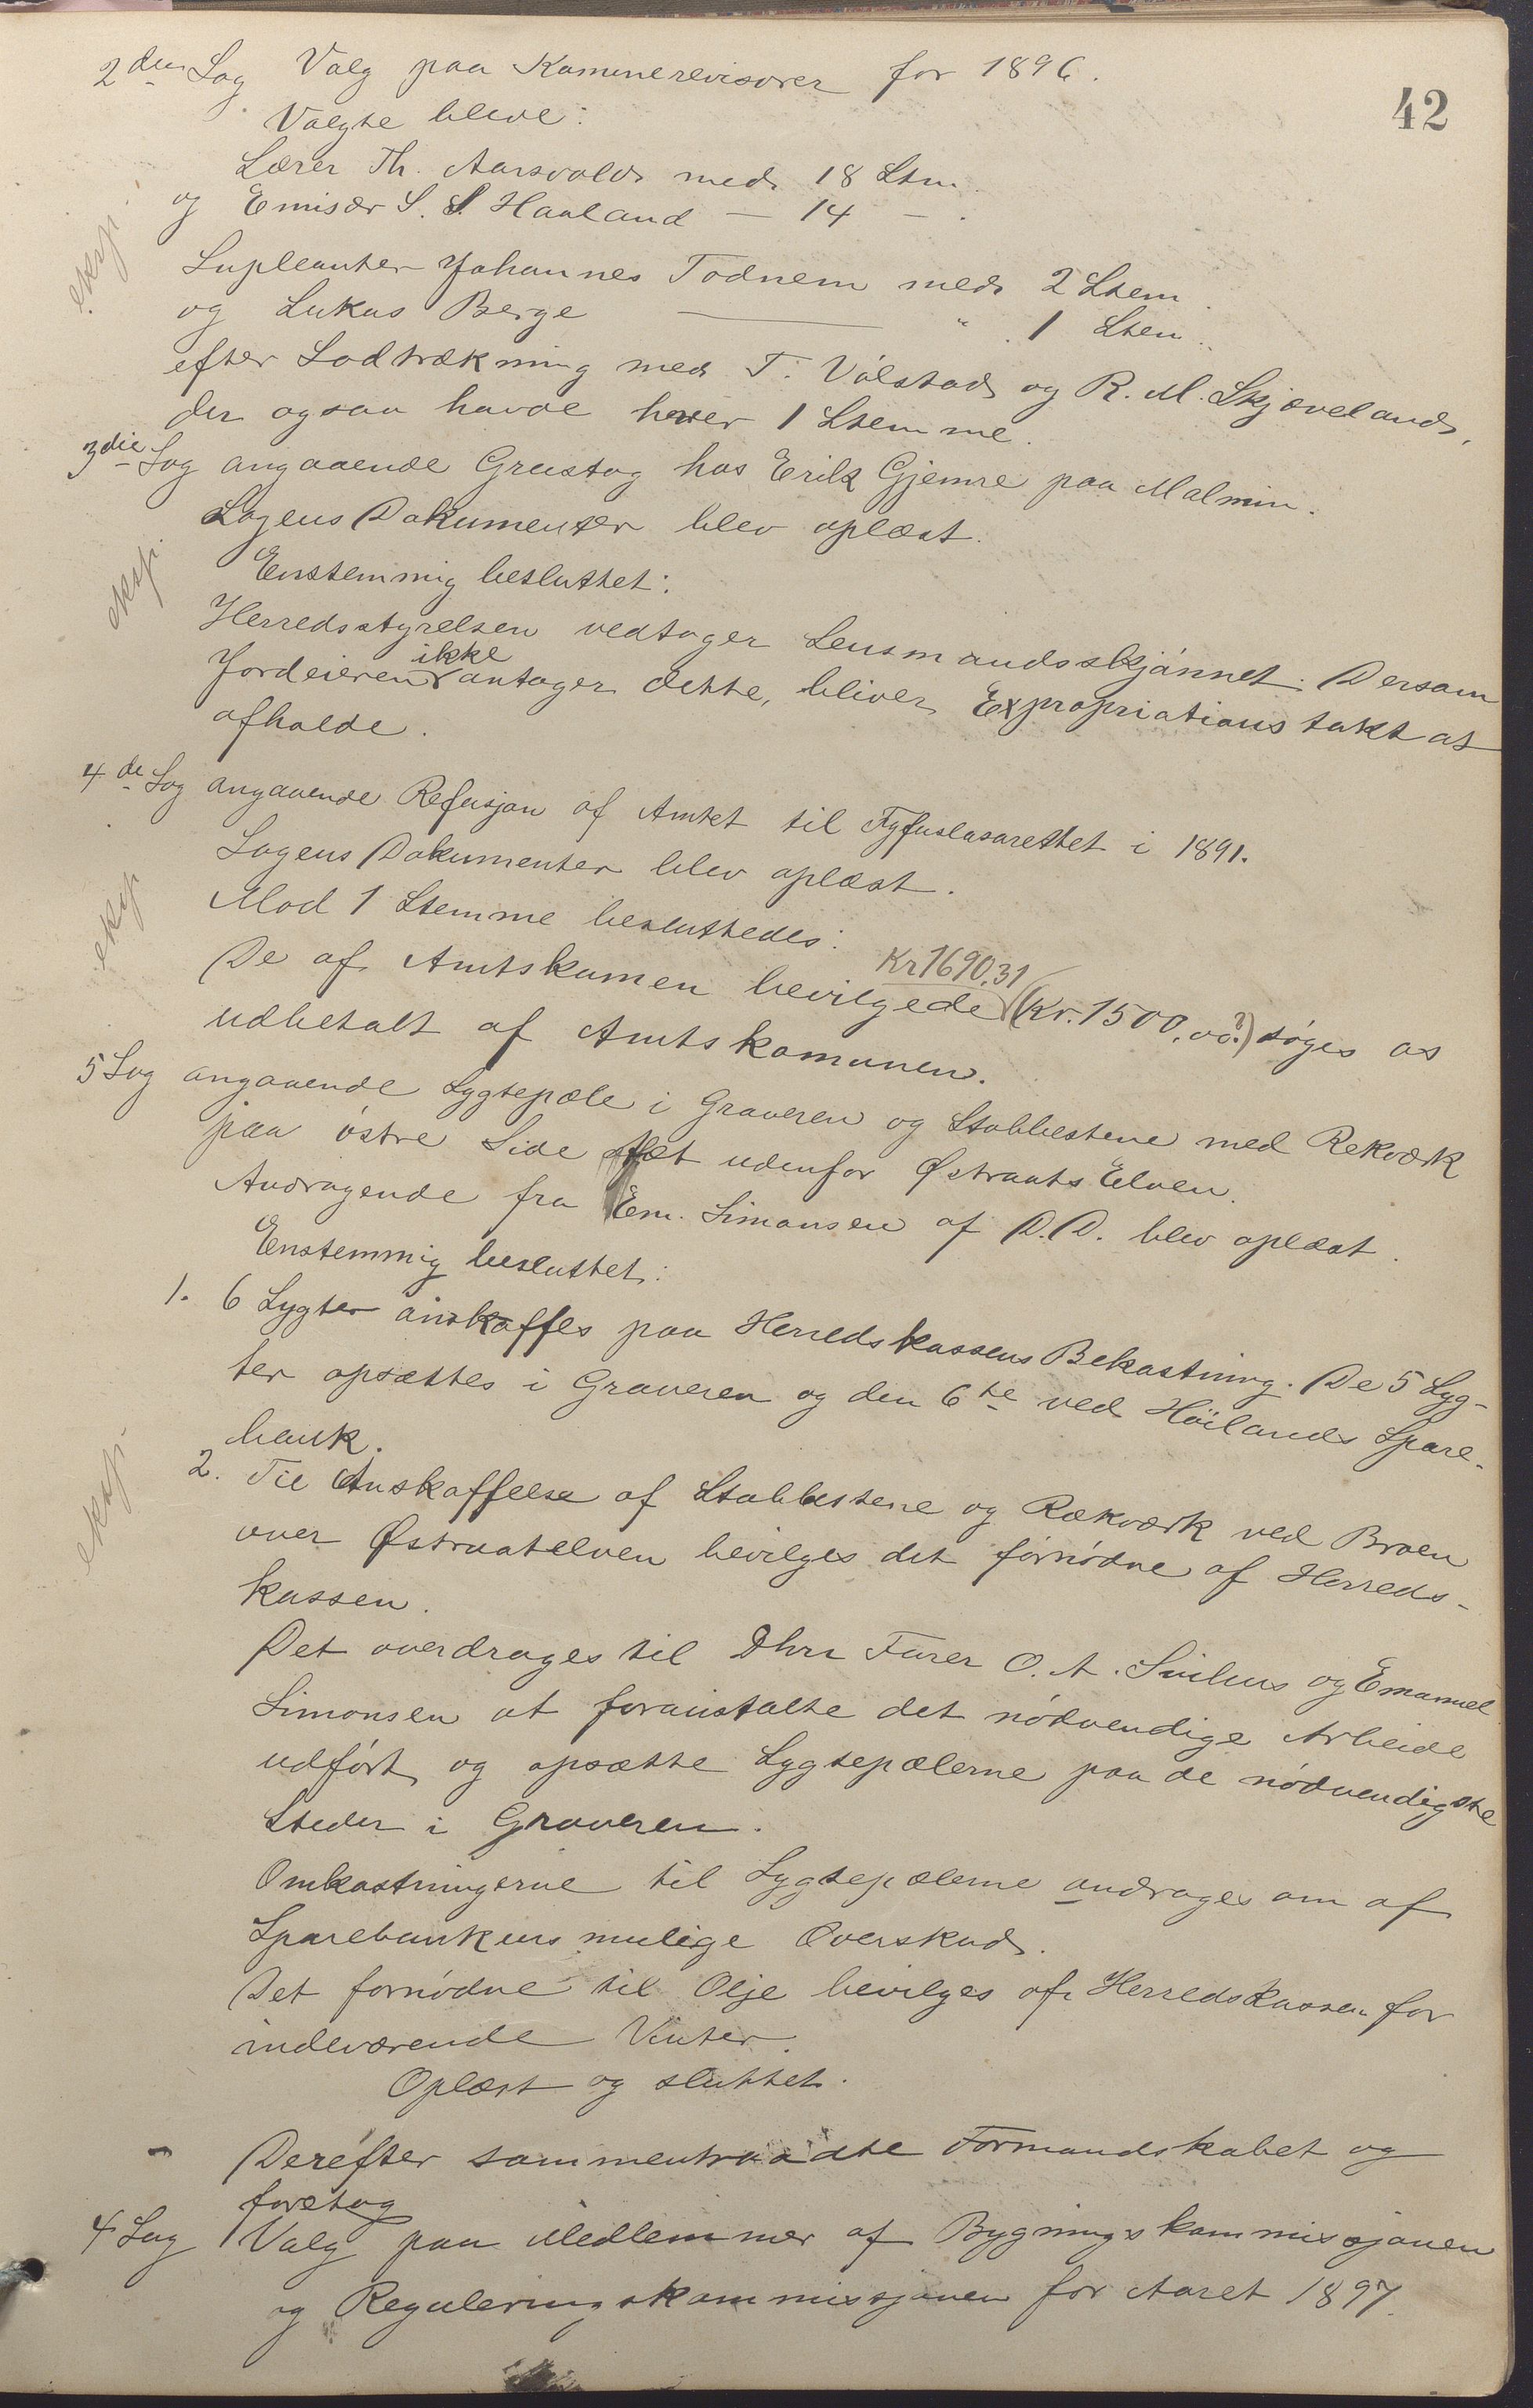 42
2den Sag Valg paa Kommunerevisorer for 1896.
Valgte bleve:
Lærer Th. Aarsvold med 18 Stm.
og Emisær S. S. Haaland — 14 — .
eksp.
Supleanter Johannes Todnem med 2 Stem.
og Lukas Berge — " 1 Stem.
efter Lodtrækning med T. Válstad og R. M. Skjæveland,
der ogsaa havde hver 1 Stemme.
3die Sag angaaende Grustag hos Erik Gjemre paa Malmin.
Sagens Dokumenter blev oplæst.
eksp.
Enstemmig besluttet:
Herredsstyrelsen vedtager Lensmandsskjønnet. Dersom
ikke
Jordeieren antager dette, bliver Expropriationstakt at
afholde.
4de Sag angaaende Refusjon af Amtet til Tyfuslasarettet i 1891.
Sagens Dokumenter blev oplæst.
eksp.
Mod 1 Stemme besluttedes:
Kr 1690,31
De af Amtskomen bevilgede (Kr. 1500,00?) søges as
udbetalt af Amtskomunen.
5 Sag angaaende Lygtepæle i Graveren og Stabbestene med Rekværk
paa østre Side tæt udenfor Østraats Elven.
Andragende fra Em. Simonsen af D.D. blev oplæst.
Enstemmig besluttet:
1. 6 Lygter anskaffes paa Herredskassens Bekostning. De 5 Lyg-
ter opsættes i Graveren og den 6te ved Høilands Spare-
bank.
eksp.
2. Til Anskaffelse af Stabbestene og Rækværk ved Broen
over Østraatelven bevilges det fornødne af Herreds-
kassen.
Det overdrages til Dhrr Furer O. A. Svihus og Emanuel
Simonsen at foranstalte det nødvendige Arbeide
udført og opsætte Lygtepælerne paa de nødvendigste
Steder i Graveren.
Omkostningerne til Lygtepælerne andrages om af
Sparebankens mulige Overskud.
Det fornødne til Olje bevilges af Herredskassen for
indeværende Vinter.
Oplæst og sluttet.
Derefter sammentraadte Formandskabet og
foretog
4 Sag Valg paa Medlemmer af Bygningskommissjonen
og Reguleringskommissjonen for Aaret 1897.